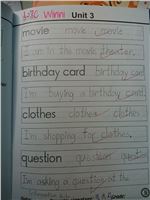 Winni Unit 3
movie movie movie
I am in the movie theater.
birthday card birthday card
I'm buying a birthday card.
clothes clothes clothes
I'm shopping for clothes.
question question question
I'm asking a question at the